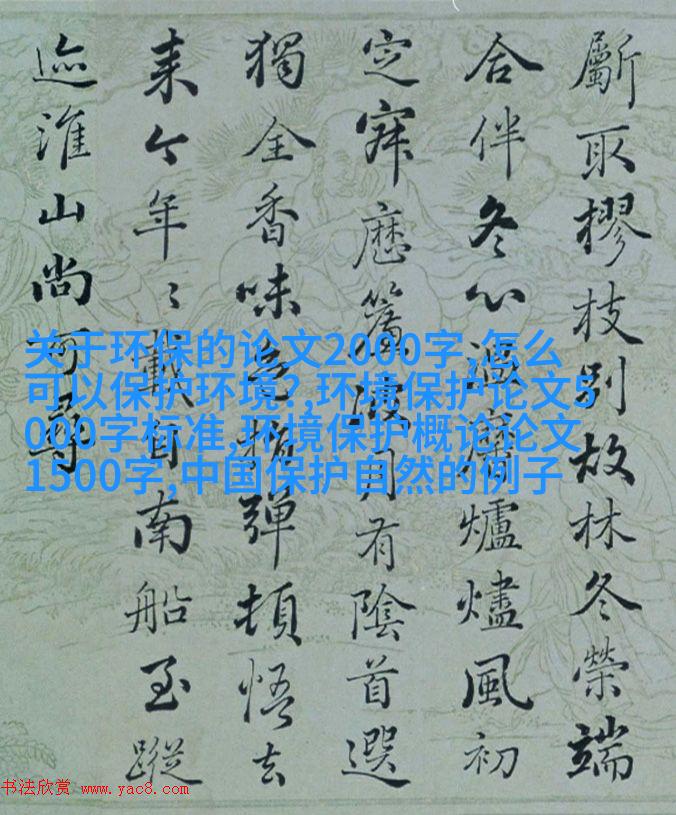 斸取樛枝别故林冬榮端
合伴冬心爐燼風初
定寐歷簷月有陰首選
獨全香味彈頓悟去
来今年〻載自南船至蹤
迹淮山尚可尋
关于环保的论文2000字,怎么
可以保护环境?,环境保护论文5
000字标准,环境保护概论论文
1500字,中国保护自然的例子
书法欣赏 www.yac8.com